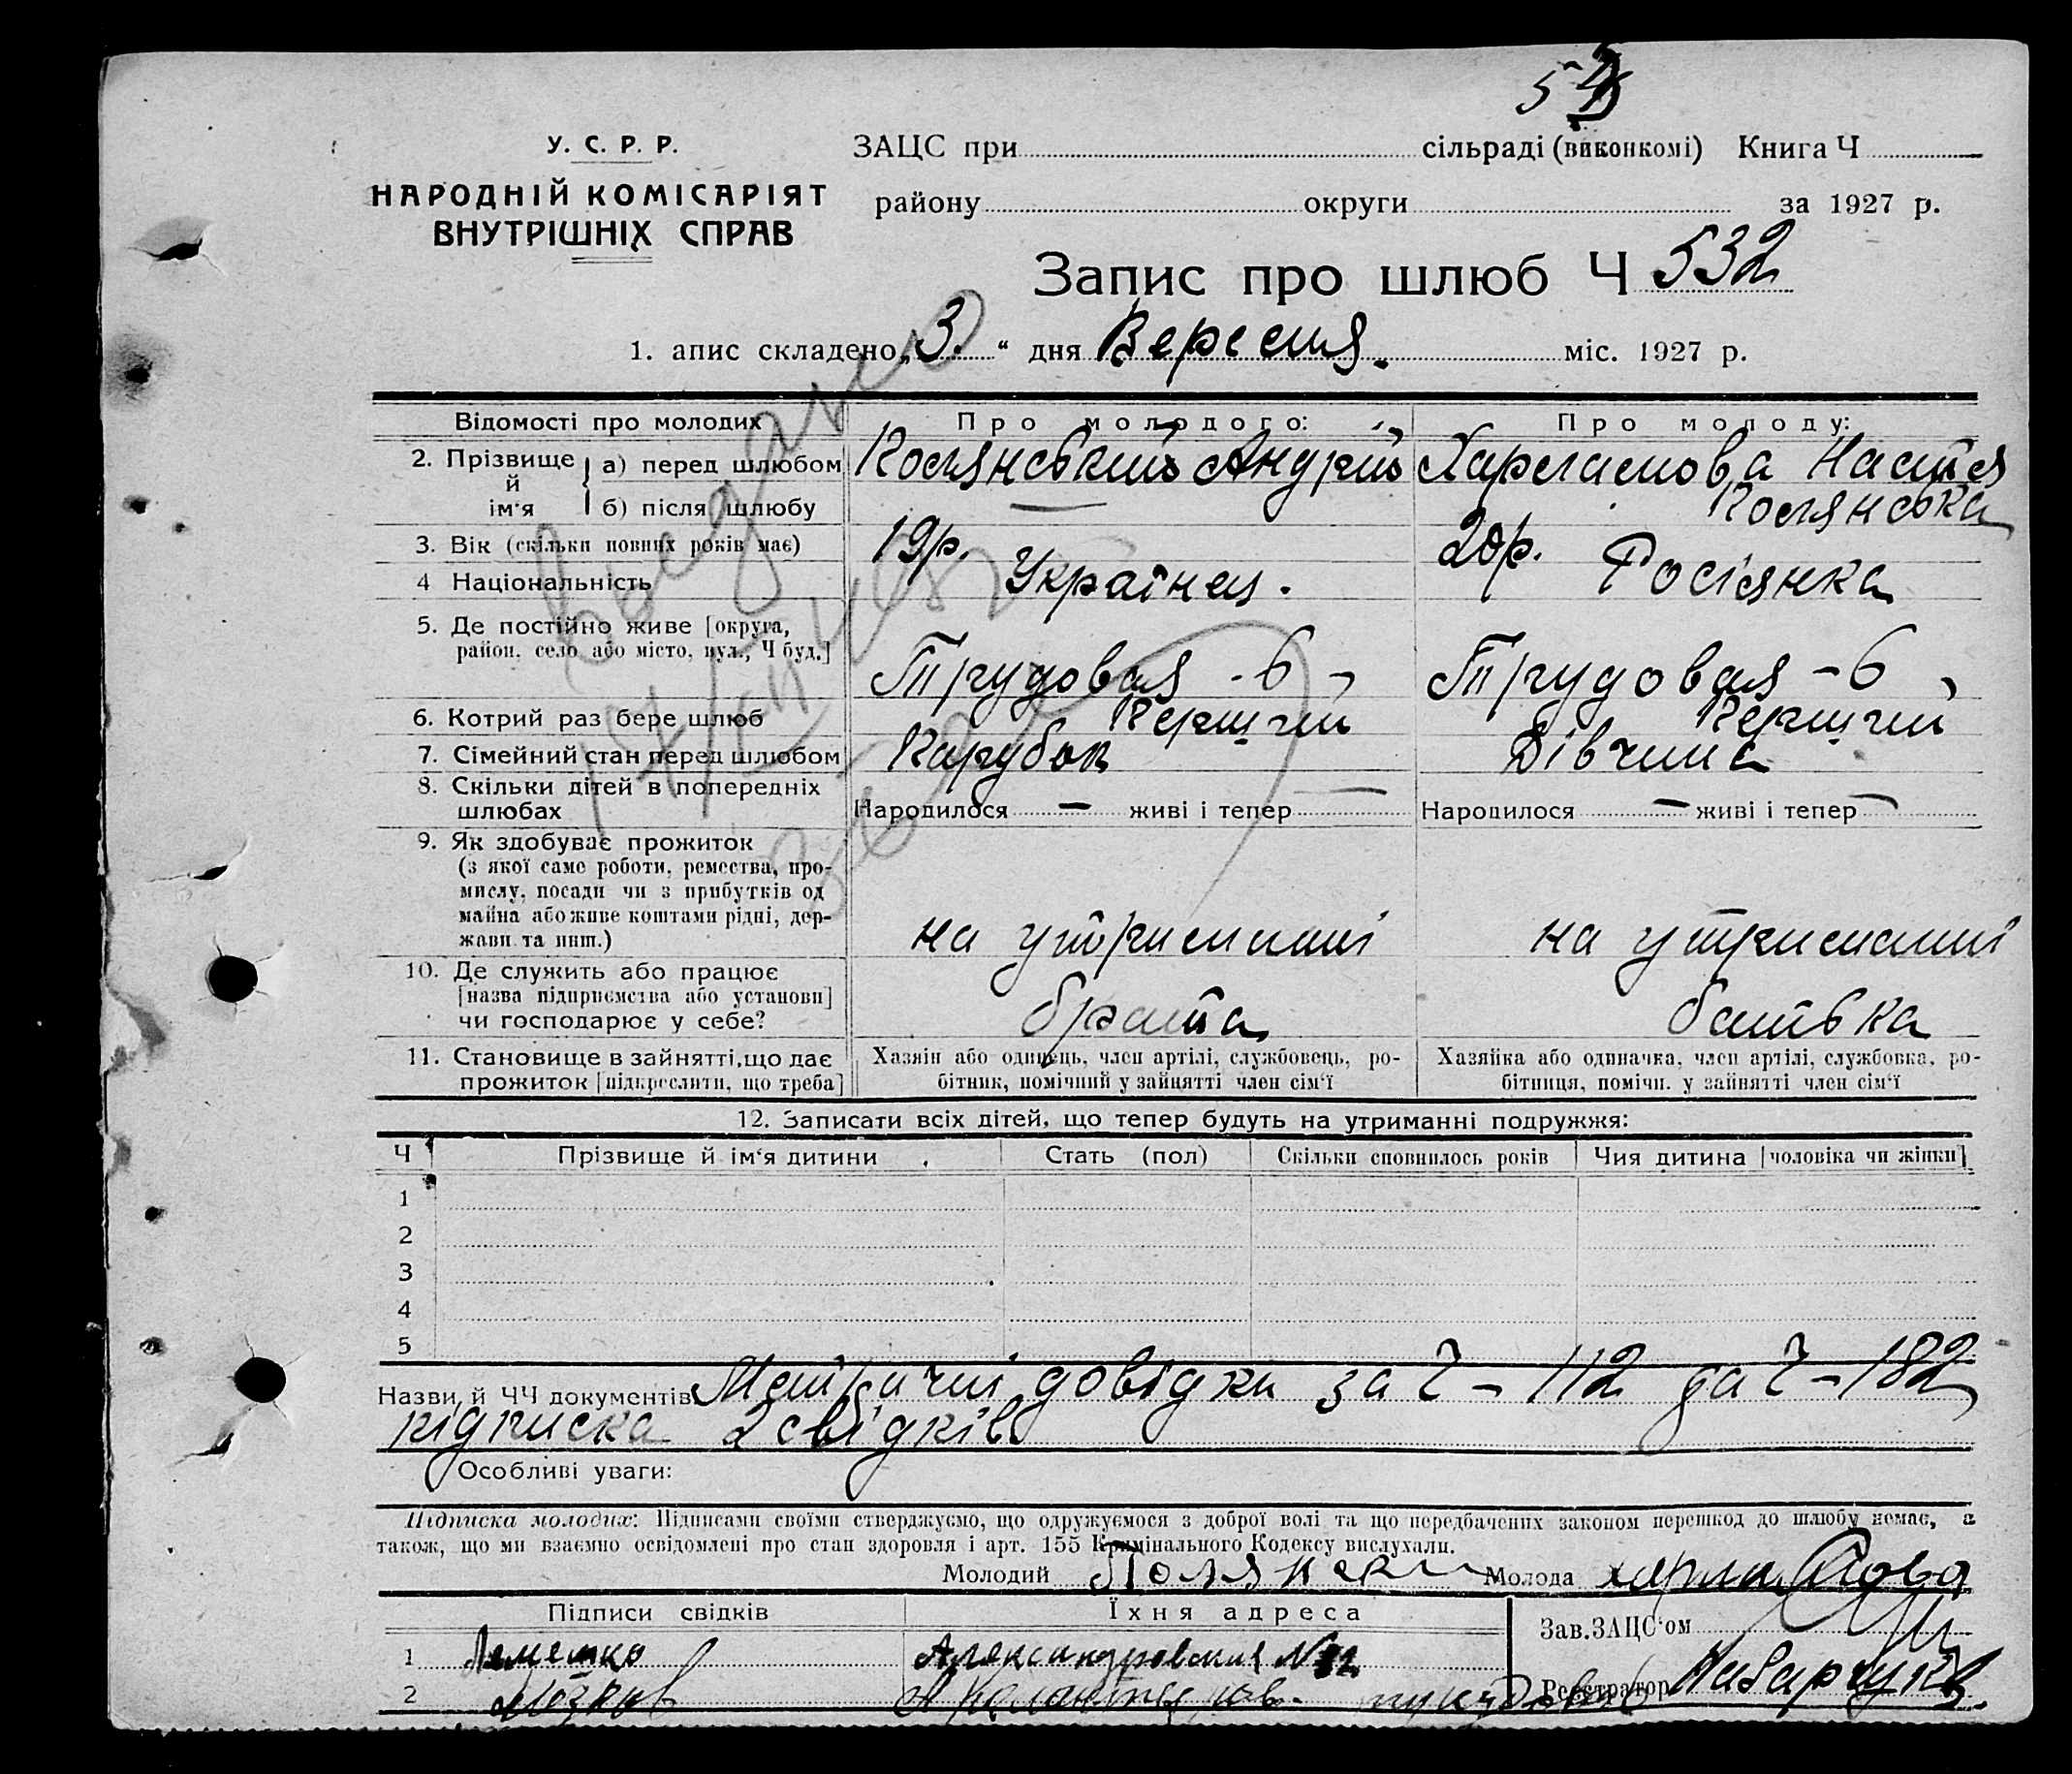 У. С. Р. Р.
НАРОДНІЙ КОМІСАРІЯТ
ВНУТРІШНІХ СПРАВ
ЗАЦС при сільраді (виконкомі) Книга Ч
району округи за 1927 р.
Запис про шлюб Ч 532
1. апис складено „3.“ дня Вересня. міс. 1927 р.
Відомості про молодих
Про молодого:
Про молоду:
2. Прізвище й ім'я
а) перед шлюбом
Полянський Андрій
Харламова Настя
б) після шлюбу
—
Полянська
3. Вік (скільки повних років має)
19р.
20р.
4 Національність
Українец.
Росіянка
5. Де постійно живе [округа,
район, село або місто, вул., Ч буд.]
Трудовая - 6
Трудовая - 6
6. Котрий раз бере шлюб
Перший
Перший
7. Сімейний стан перед шлюбом
Парубок
Дівчина
8. Скільки дітей в попередніх
шлюбах
Народилося — живі і тепер —
Народилося — живі і тепер —
9. Як здобуває прожиток
(з якої саме роботи, ремества, про-
мислу, посади чи з прибутків од
майна або живе коштами рідні, дер-
жави та инш.)
на утриманні
на утриманні
10. Де служить або працює
[назва підприємства або установи]
чи господарює у себе?
брата
батька
11. Становище в зайнятті, що дає
прожиток [підкреслити, що треба]
Хазяїн або одинець, член артілі, службовець, ро-
бітник, помічний у зайнятті член сім'ї
Хазяйка або одиначка, член артілі, службовка, ро-
бітниця, помічн. у зайнятті член сім'ї
12. Записати всіх дітей, що тепер будуть на утриманні подружжя:
Ч Прізвище й ім'я дитини Стать (пол) Скільки сповнилось років Чия дитина [чоловіка чи жінки]
1
2
3
4
5
Назви й ЧЧ документів Метричні довідки за Ч - 112 та Ч - 182
підписка 2 свідків
Особливі уваги:
Підписка молодих: Підписами своїми стверджуємо, що одружуємося з доброї волі та що передбачених законом перешкод до шлюбу немає, а
також, що ми взаємно освідомлені про стан здоровля і арт. 155 Кримінального Кодексу вислухали.
Молодий Полянски Молода Харламова
Підписи свідків Їхня адреса
Зав. ЗАЦС'ом
1 Александровская N
2
Реєстратор